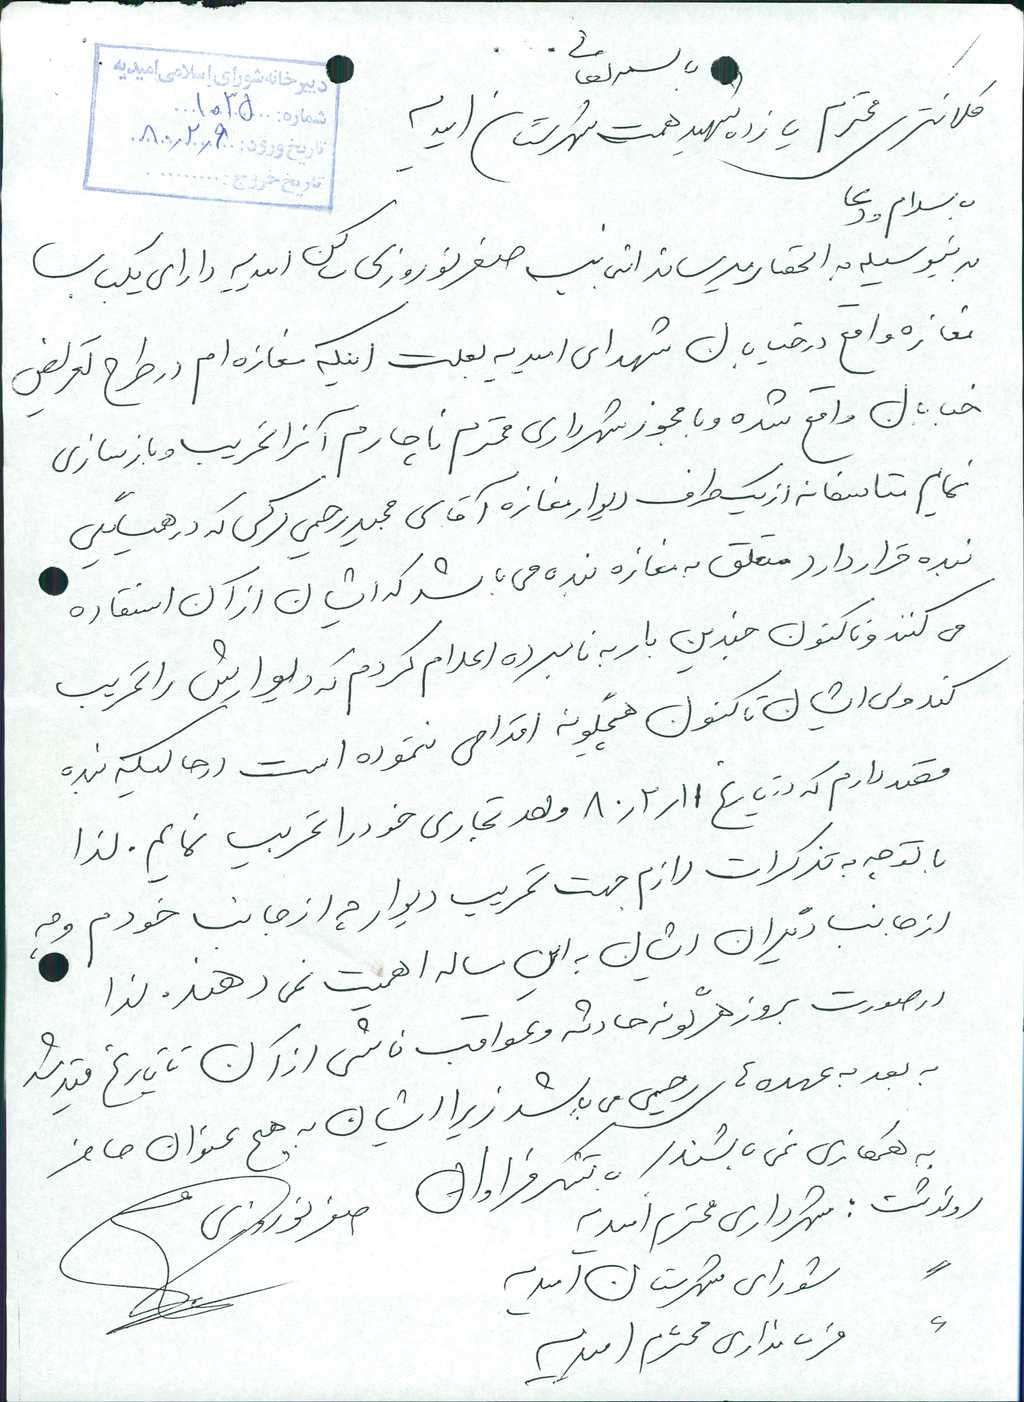 باسمه تعالی
دبیرخانه شورای اسلامی امیدیه
شماره: ۱۰۳۵
تاریخ ورود: ۸۰/۲/۹
تاریخ خروج:
کلانتری محترم یازده شهید همت شهرستان امیدیه
با سلام و دعا
بدینوسیله به استحضار میرساند اینجانب صفر نوروزی ساکن امیدیه دارای یکباب
مغازه واقع در خیابان شهدای امیدیه بعلت اینکه مغازه ام در طرح تعریض
خیابان واقع شده و با مجوز شهرداری محترم ناچارم آنرا تخریب و بازسازی
نمایم متاسفانه از یکطرف دیوار مغازه آقای مجید رحیمی که در همسایگی
بنده قرار دارد متعلق به مغازه بنده می باشد که ایشان از آن استفاده
می کنند و تاکنون چندین بار به نامبرده اعلام کردم که دیوارش را تخریب
کند ولی ایشان تاکنون هیچگونه اقدامی ننموده است در حالیکه بنده
قصد دارم که در تاریخ ۸۰/۲/۱۱ واحد تجاری خود را تخریب نمایم. لذا
با توجه به تذکرات لازم جهت تخریب دیوار چه از جانب خودم و چه
از جانب دیگران ایشان به این مساله اهمیت نمی دهند. لذا
در صورت بروز هرگونه حادثه و عواقب ناشی از آن تا تاریخ قید شده
به بعد به عهده رحیمی می باشد زیرا ایشان به هیچ عنوان حاضر
به همکاری نمی باشند / با تشکر فراوان
صفر نوروزی
رونوشت: شهرداری محترم امیدیه
〃 شورای شهرستان امیدیه
〃 فرمانداری محترم امیدیه